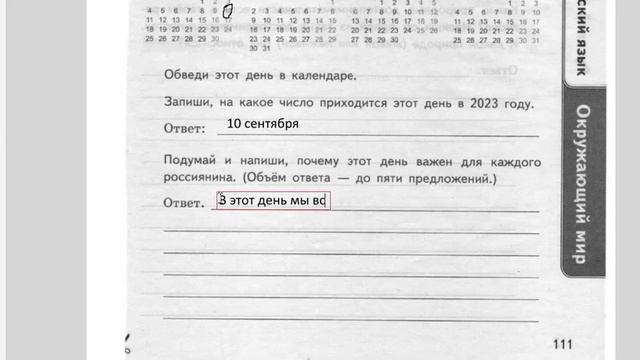 4 5 6 7 8 9 2 3 4 5 6 7 8 6 7 8 9 10 11 12 4 5 6 7 8 9 10
11 12 13 14 15 16 17 9 10 11 12 13 14 15 13 14 15 16 17 18 19 11 12 13 14 15 16 17
18 19 20 21 22 23 24 16 17 18 19 20 21 22 20 21 22 23 24 25 26 18 19 20 21 22 23 24
25 26 27 28 29 30 23 24 25 26 27 28 29 27 28 29 30 25 26 27 28 29 30 31
30 31
Обведи этот день в календаре.
Запиши, на какое число приходится этот день в 2023 году.
Ответ: 10 сентября
Подумай и напиши, почему этот день важен для каждого
россиянина. (Объём ответа — до пяти предложений.)
Ответ. В этот день мы вс
ский язык
Окружающий мир
111